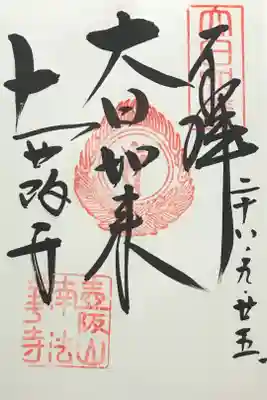 奉拝
二十八・九・廿五
大日如来
壺阪寺
壺阪山
南法
華寺